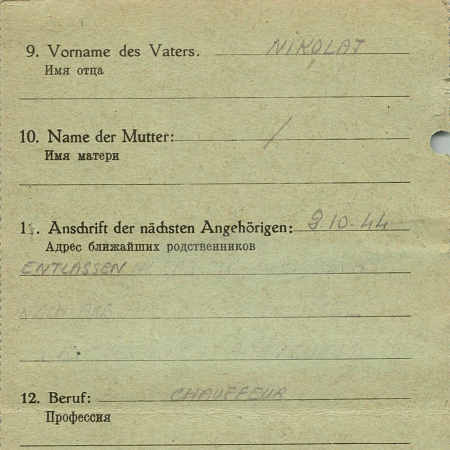 9. Vorname des Vaters. NIKOLAJ
Имя отца
10. Name der Mutter: /
Имя матери
11. Anschrift der nächsten Angehörigen: 9 10-44
Адрес ближайших родственников
ENTLASSEN
NACH ARB
12. Beruf: CHAUFFEUR
Профессия